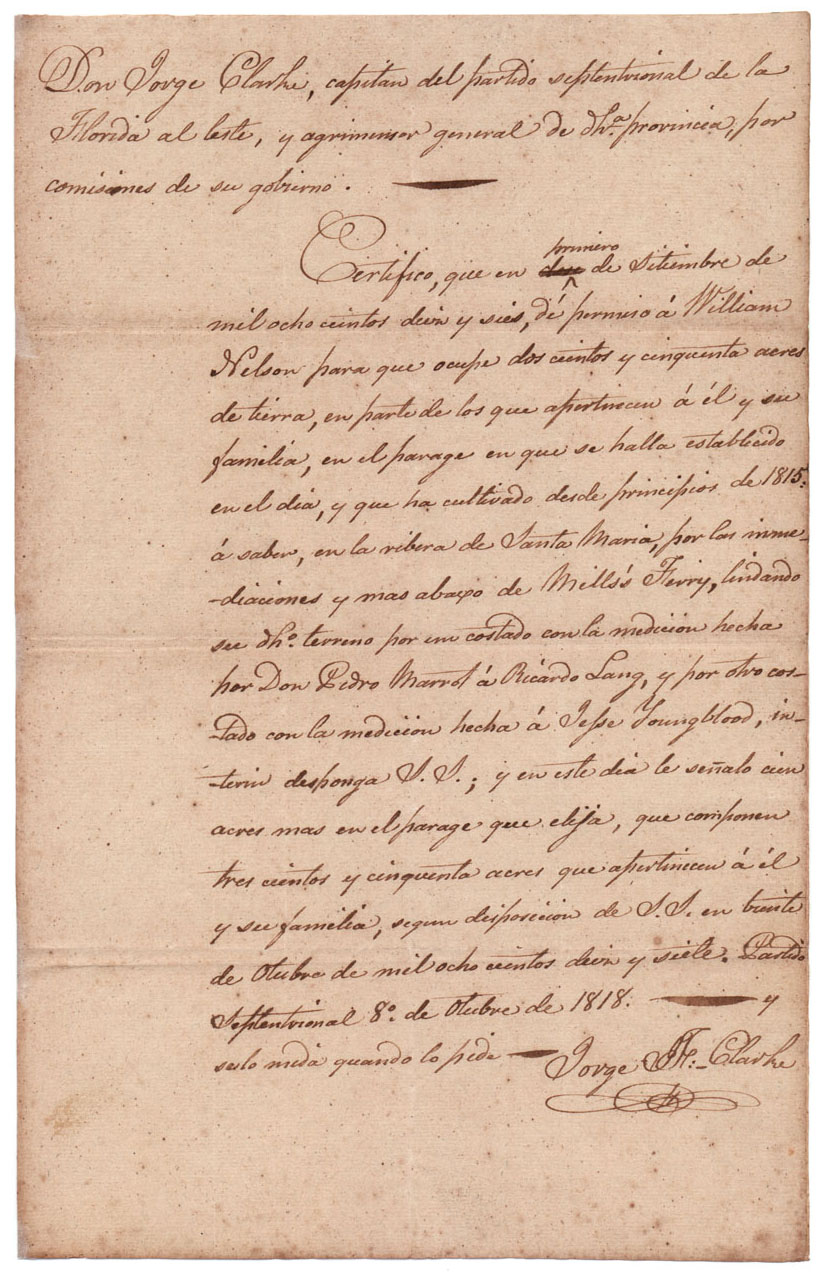 Don Jorge Clarke, capitan del partido septentrional de la
Florida al leste, y agrimensor general de dha. provincia, por
comisiones de su gobierno.
primero
Certifico, que en de Setiembre de
mil ocho cientos deiz y sies, dé permiso á William
Nelson para que ocupe dos cientos y cinquenta acres
de tierra, en parte de los que apertinecen á él y su
familia, en el parage en que se halla establecido
en el dia, y que ha cultivado desde principios de 1815:
á saber, en la ribera de Santa Maria, por las inme-
-diaciones y mas abaxo de Mills's Ferry, lindando
su dho. terreno por un costado con la medicion hecha
por Don Pedro Marrot á Ricardo Lang, y por otro cos-
-tado con la medicion hecha á Jesse Youngblood, in-
-terin desponga S. S.; y en este dia le señalo cien
acres mas en el parage que elija, que componen
tres cientos y cinquenta acres que apertinecen á él
y su familia, segun disposicion de S. S. en biente
de Otubre de mil ocho cientos deiz y siete. Partido
Septentrional 8o. de Otubre de 1818. y
selo mida quando lo pide Jorge J. F. Clarke